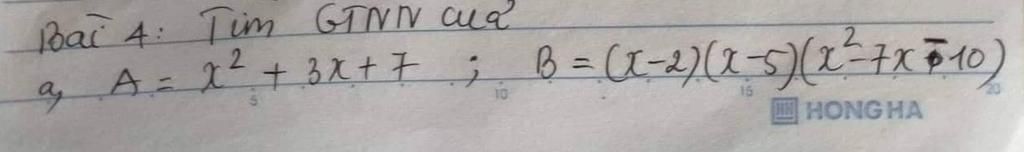 Bài 4: Tìm GTNN của
a, A = x² + 3x + 7 ; B = (x-2)(x-5)(x²-7x-10)
5 10 15 20
HONG HA